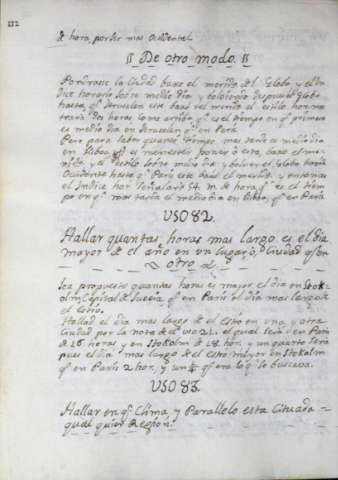 112
de hora, por ser mas Occidental.
|| De otro modo. ||
Pondrase la Ciudad baxo el merid.º del Globo y el Yn
dice horario sobre medio dia, y buelbase despues el Globo
hasta q.e Jerusalen este baxo del merid.º el estilo hor.º mos
trara dos horas, como arriba, q.e es el tiempo en q.e primero
es medio dia en Jerusalen q.e en Paris.
Pero para saber quanto tiempo mas tarde es medio dia
en Lisboa es menester poner a esta baxo el meri
diano y el estilo sobre medio dia y bolver el Globo hacia
Occidente hasta q.e Paris este baxo el merid.º y entonces
el Indice hor.º señalará de hora q.e es el tiem
po en q.e mas tarda el medio dia en Lisboa, q.e en Paris
USO 82.
Hallar quantas horas mas largo es el dia
mayor de el año en un lugar, o Ciudad q.e en
otro
Sea propuesto quantas horas es mayor el dia en Stok-
olm Capital de Suecia q.e en Paris el dia mas largo de
el estio.
Hallad el dia mas largo de el estio en una, y otra
Ciudad por la nota de el uso 21. el qual será en Paris
de 16 horas y en Stokolm de 18 hor. y un quarto será
pues el dia mas largo de el estio mayor en Stokolm
q.e en Paris 2 hor. y un q.e era lo q.e se buscava.
USO 83.
Hallar en q.e Clima, y Parallelo esta Cituada
qualquier Region.